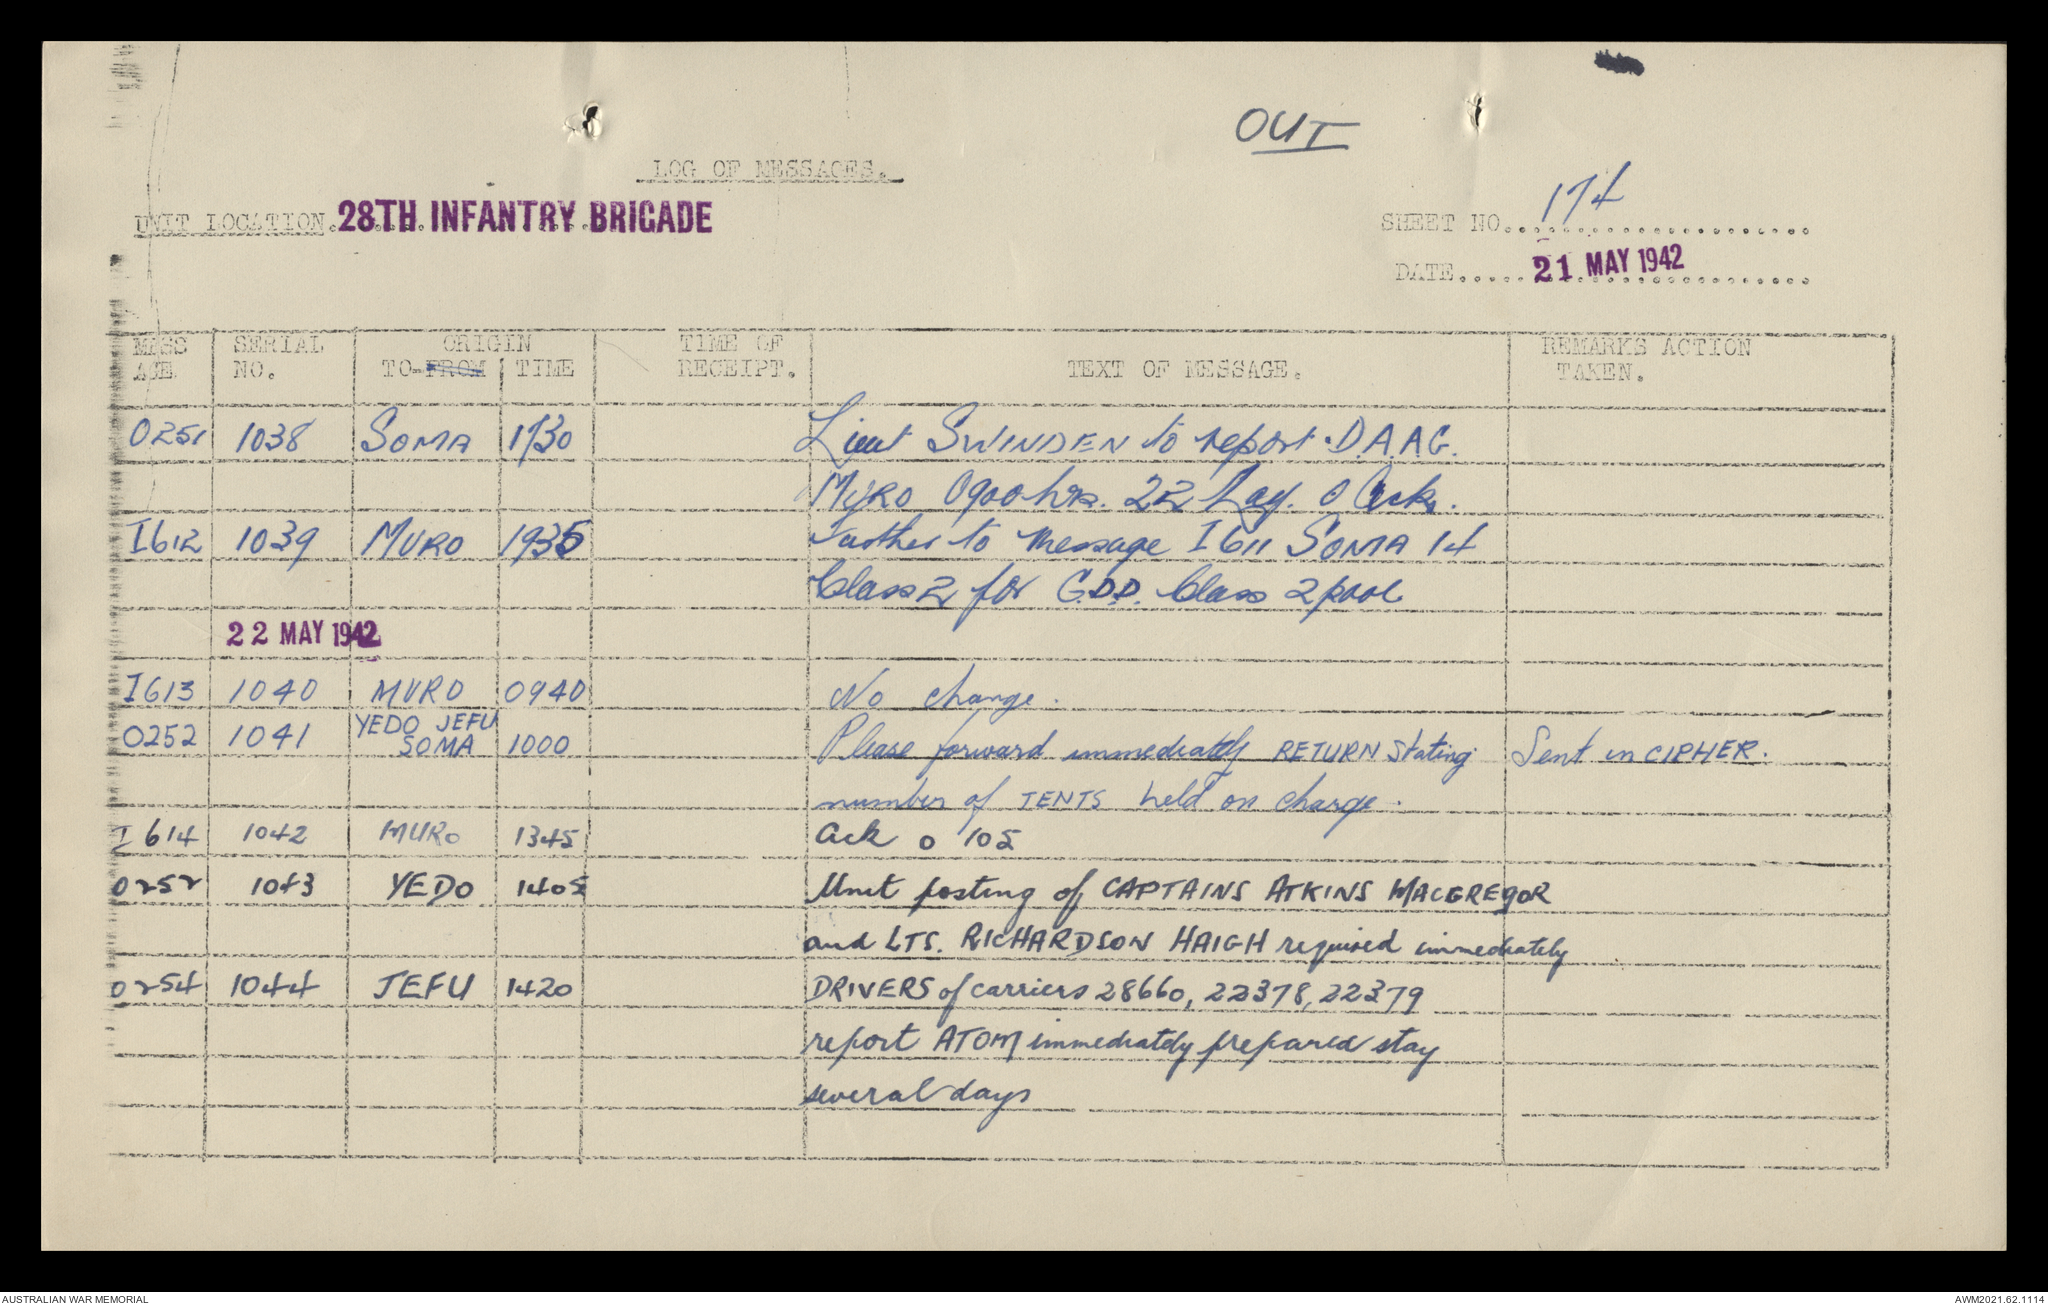 OUT
LOG OF MESSAGES.
UNIT LOCATION. 28TH INFANTRY BRIGADE
SHEET NO. 174
DATE..... 21 MAY 1942
MESS AGE. SERIAL NO. ORIGIN TO-FROM TIME TIME OF RECEIPT. TEXT OF MESSAGE. REMARKS ACTION TAKEN.
O251 1038 SOMA 1730 Lieut SWINDEN to report D.A.A.G.
MURO 0900 hrs. 22 Ack.
I612 1039 MURO 1935 Further to message I611 SOMA 14
Class 2 for G.D.D. Class 2 pool
22 MAY 1942
I613 1040 MURO 0940 No change.
O252 1041 YEDO JEFU SOMA 1000 Please forward immediately RETURN stating Sent in CIPHER.
number of TENTS held on charge.
I 614 1042 MURO 1345 Ack O 105
O252 1043 YEDO 1405 Unit posting of CAPTAINS ATKINS MACGREGOR
and LTS. RICHARDSON HAIGH required immediately
O254 1044 JEFU 1420 DRIVERS of carriers 28660, 22378, 22379
report ATOM immediately prepared stay
several days
AUSTRALIAN WAR MEMORIAL
AWM2021.62.1114